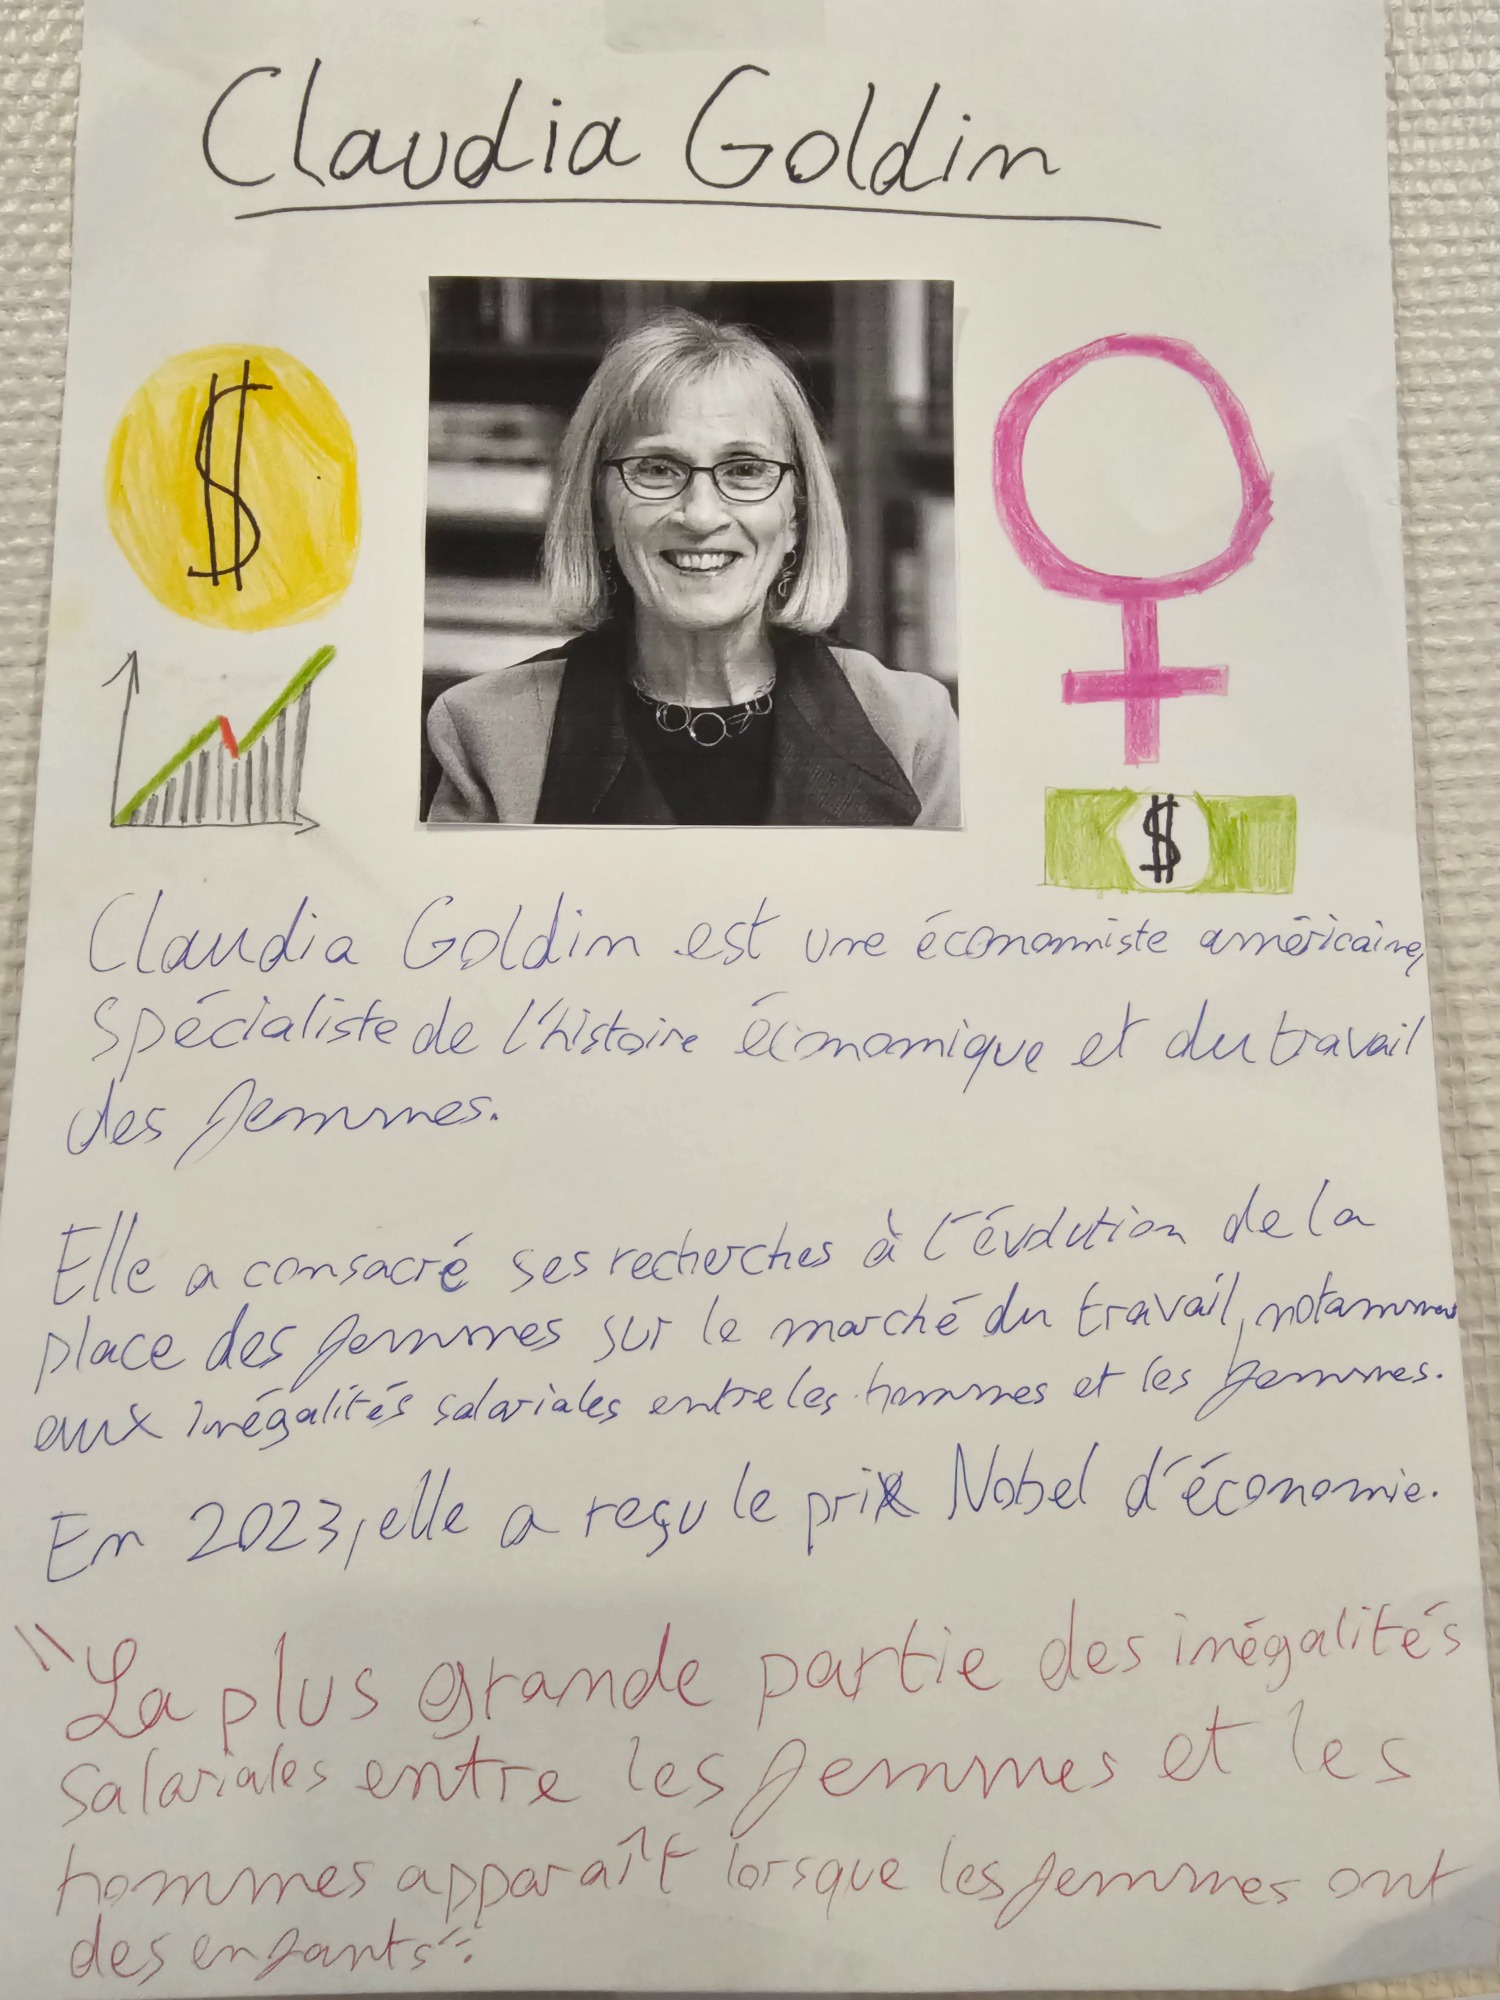 Claudia Goldin
$
$
Claudia Goldin est une économiste américaine,
spécialiste de l'histoire économique et du travail
des femmes.
Elle a consacré ses recherches à l'évolution de la
place des femmes sur le marché du travail, notamment
aux inégalités salariales entre les hommes et les femmes.
En 2023, elle a reçu le prix Nobel d'économie.
"La plus grande partie des inégalités
salariales entre les femmes et les
hommes apparaît lorsque les femmes ont
des enfants".